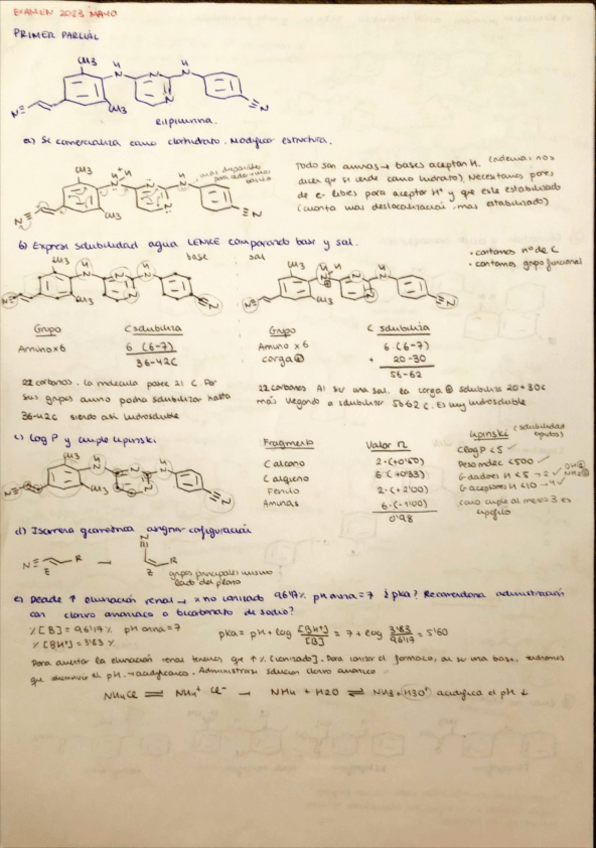 EXAMEN 2023 MAYO
PRIMER PARCIAL
Rilpivirina.
a) Se comercializa como clorhidrato. Modificar estructura.
Todo son aminas → bases aceptan H. (además nos
dicen que se vende como hidrato) Necesitamos pares
de e- libres para aceptar H+ y que este estabilizado
(cuanta mas deslocalización, mas estabilizado)
b) Exprese solubilidad agua LEMKE comparando base y sal.
base
sal
• contamos nº de C
• contamos grupo funcional
Grupo C solubiliza
Amino x6 6 (6-7)
36-42C
Grupo C solubiliza
Amino x6 6 (6-7)
carga ⊕ + 20-30
56-62
22 carbonos. La molécula posee 21 C. Por
sus grupos amino podría solubilizar hasta
36-42C siendo así hidrosoluble
22 carbonos Al ser una sal, la carga ⊕ solubiliza 20-30C
más llegando a solubilizar 56-62 C. Es muy hidrosoluble
c) Log P y cumple Lipinski
Fragmento Valor π
C alcano 2·(+0'50)
C alqueno 6·(+0'33)
Fenilo 2·(+2'00)
Aminas 6·(-1'00)
0'98
Lipinski (solubilidad
CLogP < 5 ✓
Peso molec < 500 ✓
G. dadores H < 5 → 2 ✓
G. aceptores H < 10 → 4 ✓
como cumple al menos 3 es
d) Isomería geométrica asignar configuración
N≡ R → N R
Z Z
grupos principales mismo
lado del plano
e) Desde ↑ eliminación renal → % no ionizado 96'17% pH orina = 7 ¿pka? Recomendaría administración
con cloruro amónico o bicarbonato de sodio?
% [B] = 96'17% pH orina = 7
% [BH+] = 3'83 %
pKa = pH + log [BH+]/[B] = 7 + log 3'83/96'17 = 5'60
Para aumentar la eliminación renal tenemos que ↑ % [ionizado]. Para ionizar el fármaco, al ser una base, tendremos
que disminuir el pH → acidificarlo. Administrar solución cloruro amónico
NH4Cl ⇌ NH4+ Cl- → NH4 + H2O ⇌ NH3 + H3O+) acidifica el pH ↓